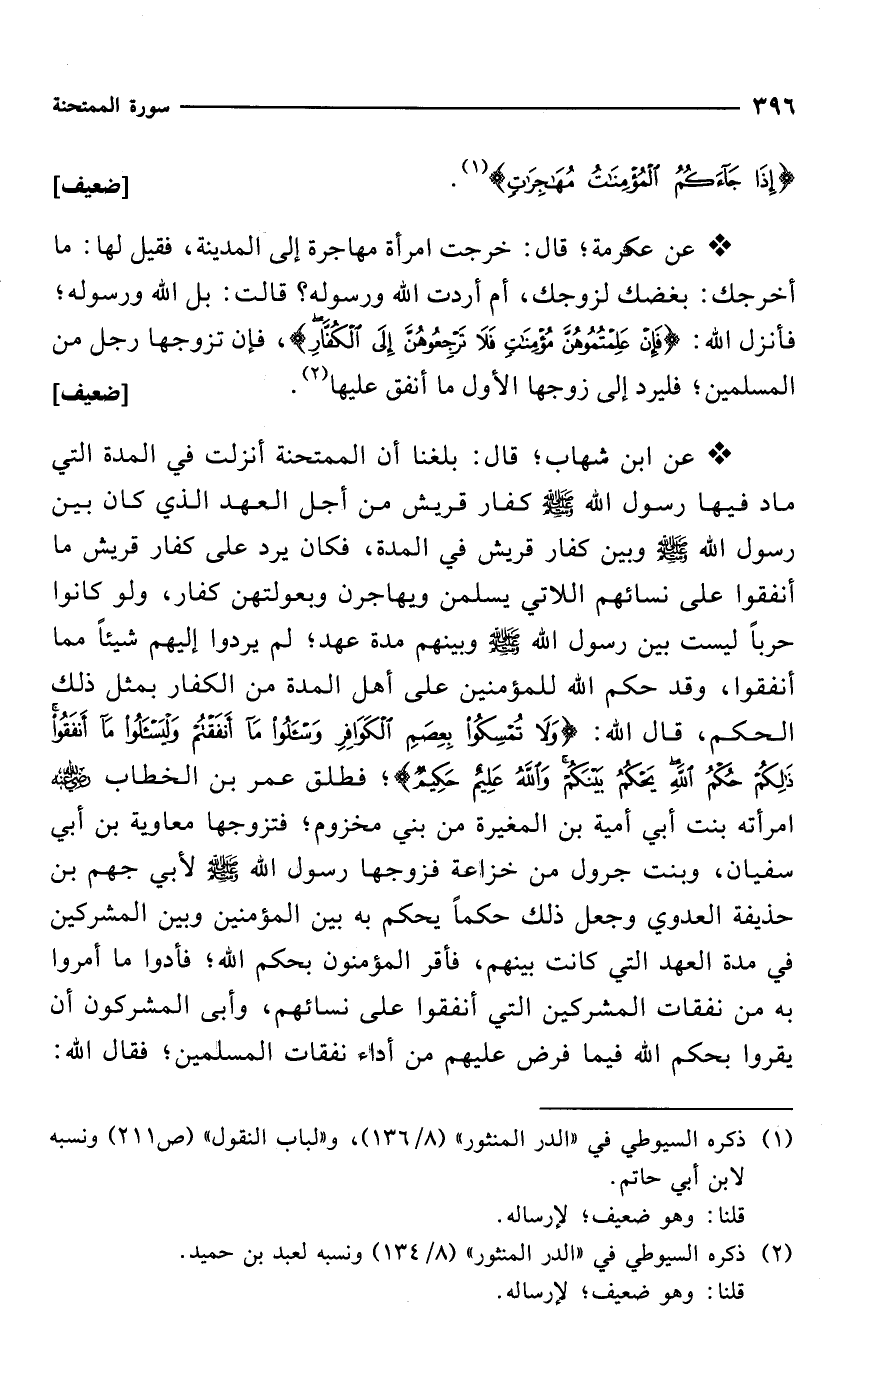 ٣٩٦ سورة الممتحنة
﴿إِذَا جَآءَكُمُ ٱلْمُؤْمِنَٰتُ مُهَٰجِرَٰتٍ﴾(١). [ضعيف]
❖ عن عكرمة؛ قال: خرجت امرأة مهاجرة إلى المدينة، فقيل لها: ما
أخرجك: بغضك لزوجك، أم أردت الله ورسوله؟ قالت: بل الله ورسوله؛
فأنزل الله: ﴿فَإِنْ عَلِمْتُمُوهُنَّ مُؤْمِنَٰتٍ فَلَا تَرْجِعُوهُنَّ إِلَى ٱلْكُفَّارِۖ﴾، فإن تزوجها رجل من
المسلمين؛ فليرد إلى زوجها الأول ما أنفق عليها(٢). [ضعيف]
❖ عن ابن شهاب؛ قال: بلغنا أن الممتحنة أنزلت في المدة التي
ماد فيها رسول الله ﷺ كفار قريش من أجل العهد الذي كان بين
رسول الله ﷺ وبين كفار قريش في المدة، فكان يرد على كفار قريش ما
أنفقوا على نسائهم اللاتي يسلمن ويهاجرن وبعولتهن كفار، ولو كانوا
حرباً ليست بين رسول الله ﷺ وبينهم مدة عهد؛ لم يردوا إليهم شيئاً مما
أنفقوا، وقد حكم الله للمؤمنين على أهل المدة من الكفار بمثل ذلك
الحكم، قال الله: ﴿وَلَا تُمْسِكُوا۟ بِعِصَمِ ٱلْكَوَافِرِ وَسْـَٔلُوا۟ مَآ أَنفَقْتُمْ وَلْيَسْـَٔلُوا۟ مَآ أَنفَقُوا۟ۚ
ذَٰلِكُمْ حُكْمُ ٱللَّهِۖ يَحْكُمُ بَيْنَكُمْۚ وَٱللَّهُ عَلِيمٌ حَكِيمٌ﴾؛ فطلق عمر بن الخطاب رضي الله عنه
امرأته بنت أبي أمية بن المغيرة من بني مخزوم؛ فتزوجها معاوية بن أبي
سفيان، وبنت جرول من خزاعة فزوجها رسول الله ﷺ لأبي جهم بن
حذيفة العدوي وجعل ذلك حكماً يحكم به بين المؤمنين وبين المشركين
في مدة العهد التي كانت بينهم، فأقر المؤمنون بحكم الله؛ فأدوا ما أمروا
به من نفقات المشركين التي أنفقوا على نسائهم، وأبى المشركون أن
يقروا بحكم الله فيما فرض عليهم من أداء نفقات المسلمين؛ فقال الله:
(١) ذكره السيوطي في «الدر المنثور» (٨/ ١٣٦)، و«لباب النقول» (ص٢١١) ونسبه
لابن أبي حاتم.
قلنا: وهو ضعيف؛ لإرساله.
(٢) ذكره السيوطي في «الدر المنثور» (٨/ ١٣٤) ونسبه لعبد بن حميد.
قلنا: وهو ضعيف؛ لإرساله.